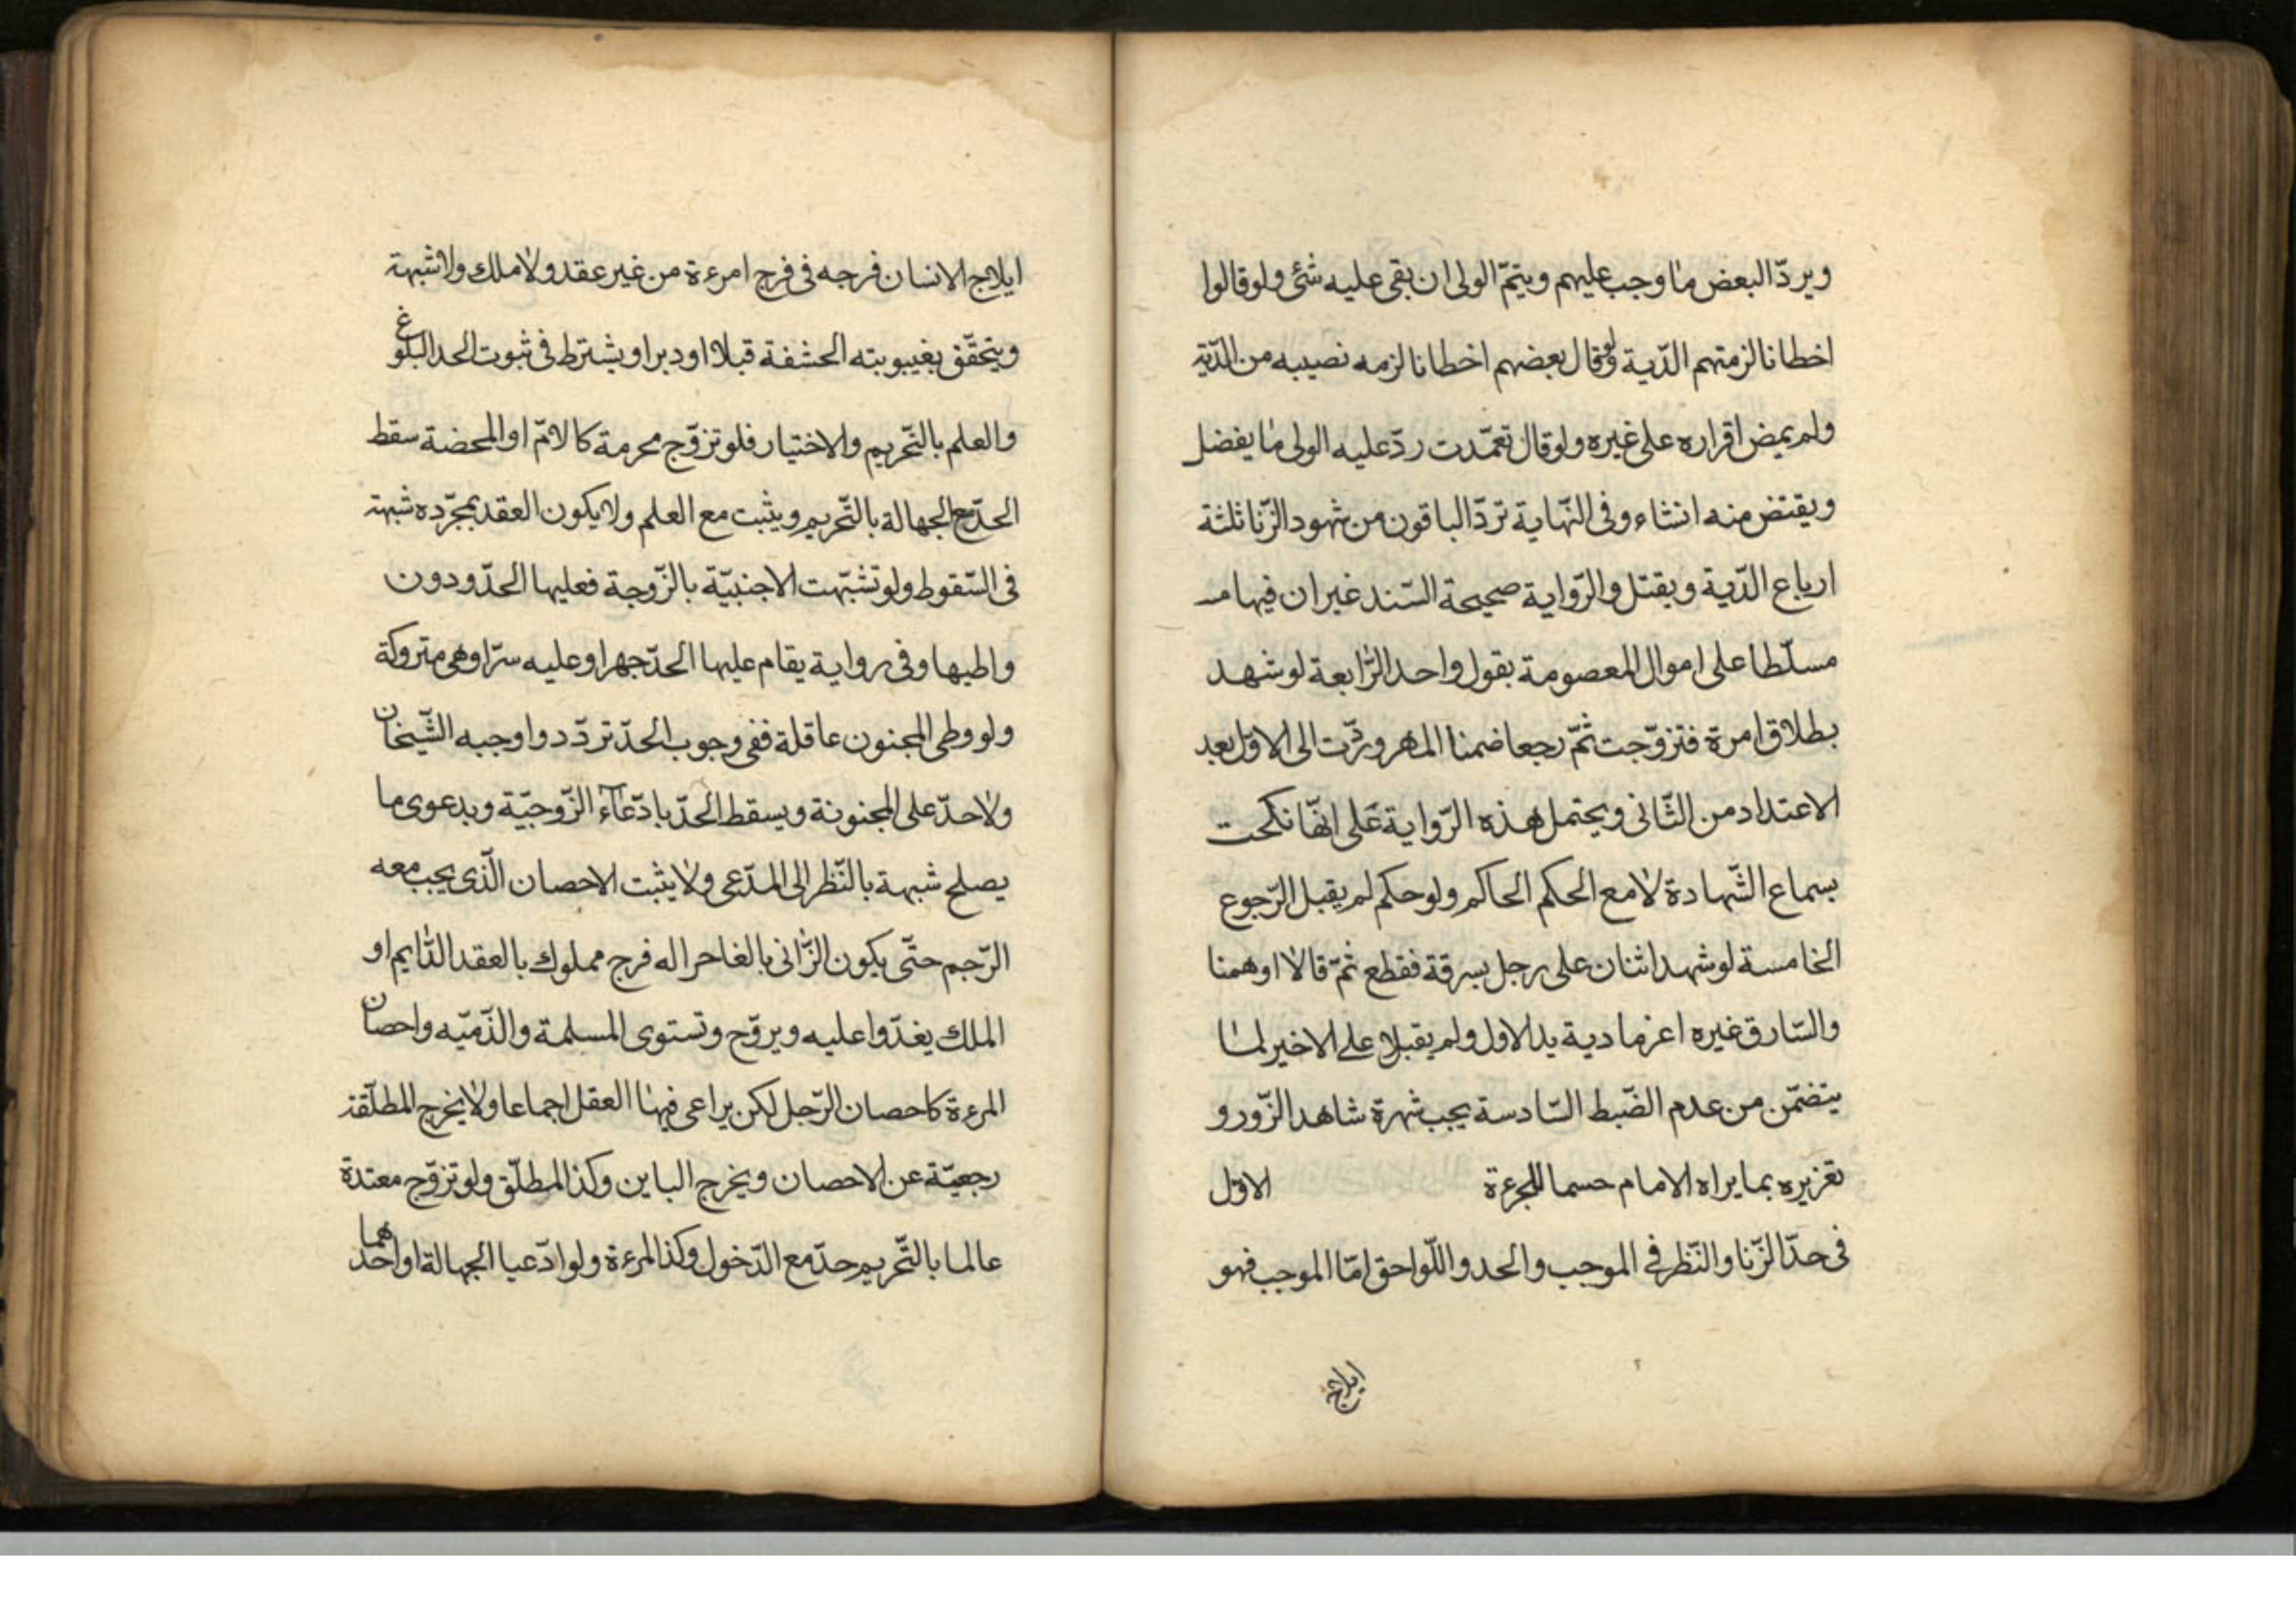 ويردّ البعض ما وجب عليهم ويتمّ الولى ان بقى عليه شئ ولو قالوا
اخطانا لزمتهم الدّية ولو قال بعضهم اخطانا لزمه نصيبه من الدّية
ولم يمض اقراره على غيره ولو قال تعمّدت ردّ عليه الولى ما يفضل
ويقتص منه انشاء وفى النّهاية تردّ الباقون من شهود الزّنا ثلثة
ارباع الدّية ويقتل والرّواية صحيحة السّند غير ان فيها
مسلّطا على اموال المعصومة بقول واحد الرّابعة لو شهد
بطلاق امرة فتزوّجت ثمّ رجعا ضمنا المهر وردّت الى الاوّل بعد
الاعتداد من الثّانى ويحتمل هذه الرّواية عَلى انّها نكحت
بسماع الشّهادة لا مع الحكم الحاكم ولو حكم لم يقبل الرّجوع
الخامسة لو شهد اثنان على رجل بسرقة فقطع ثمّ قالا اوهمنا
والسّارق غيره اغرما دية يد الاول ولم يقبلا على الاخير لما
يتضمّن من عدم الضّبط السّادسة يجب شهرة شاهد الزّور و
تعزيره بما يراه الامام حسما للجرءة الاوّل
فى حدّ الزّنا والنّظر فى الموجب والحد واللّواحق امّا الموجب فهو
ايلاج
ايلاج الانسان فرجه فى فرج امرءة من غير عقد ولا ملك ولا شبهة
ويتحقّق بغيبوبته الحشفة قبلا او دبرا ويشترط فى ثبوت الحد البلوغ
والعلم بالتّحريم والاختيار فلو تزوّج محرمة كالامّ او المحضة سقط
الحدّ مع الجهالة بالتّحريم ويثبت مع العلم ولا يكون العقد بمجرّده شبهة
فى السّقوط ولو تشبّهت الاجنبيّة بالزّوجة فعليها الحدّ ودون
واطيها وفى رواية يقام عليها الحدّ جهرا وعليه سرّا وهى متروكة
ولو وطى المجنون عاقلة ففى وجوب الحدّ تردّد واوجبه الشّيخان
ولا حدّ على المجنونة ويسقط الحدّ بادّعآء الزّوجيّة وبدعوى ما
يصلح شبهة بالنّظر الى المدّعى ولا يثبت الاحصان الّذى يجب معه
الرّجم حتّى يكون الزّانى بالغا حرا له فرج مملوك بالعقد الدّايم او
الملك يغدّوا عليه ويروّح وتستوى المسلمة والذّميّه واحصان
المرءة كاحصان الرّجل لكن يراعى فيها العقل اجماعا ولا يخرج المطلّقة
رجعيّة عن الاحصان ويخرج الباين وكذا المطلّق ولو تزوّج معتدة
عالما بالتّحريم حدّ مع الدّخول وكذا المرءة ولو ادّعيا الجهالة او احدهما